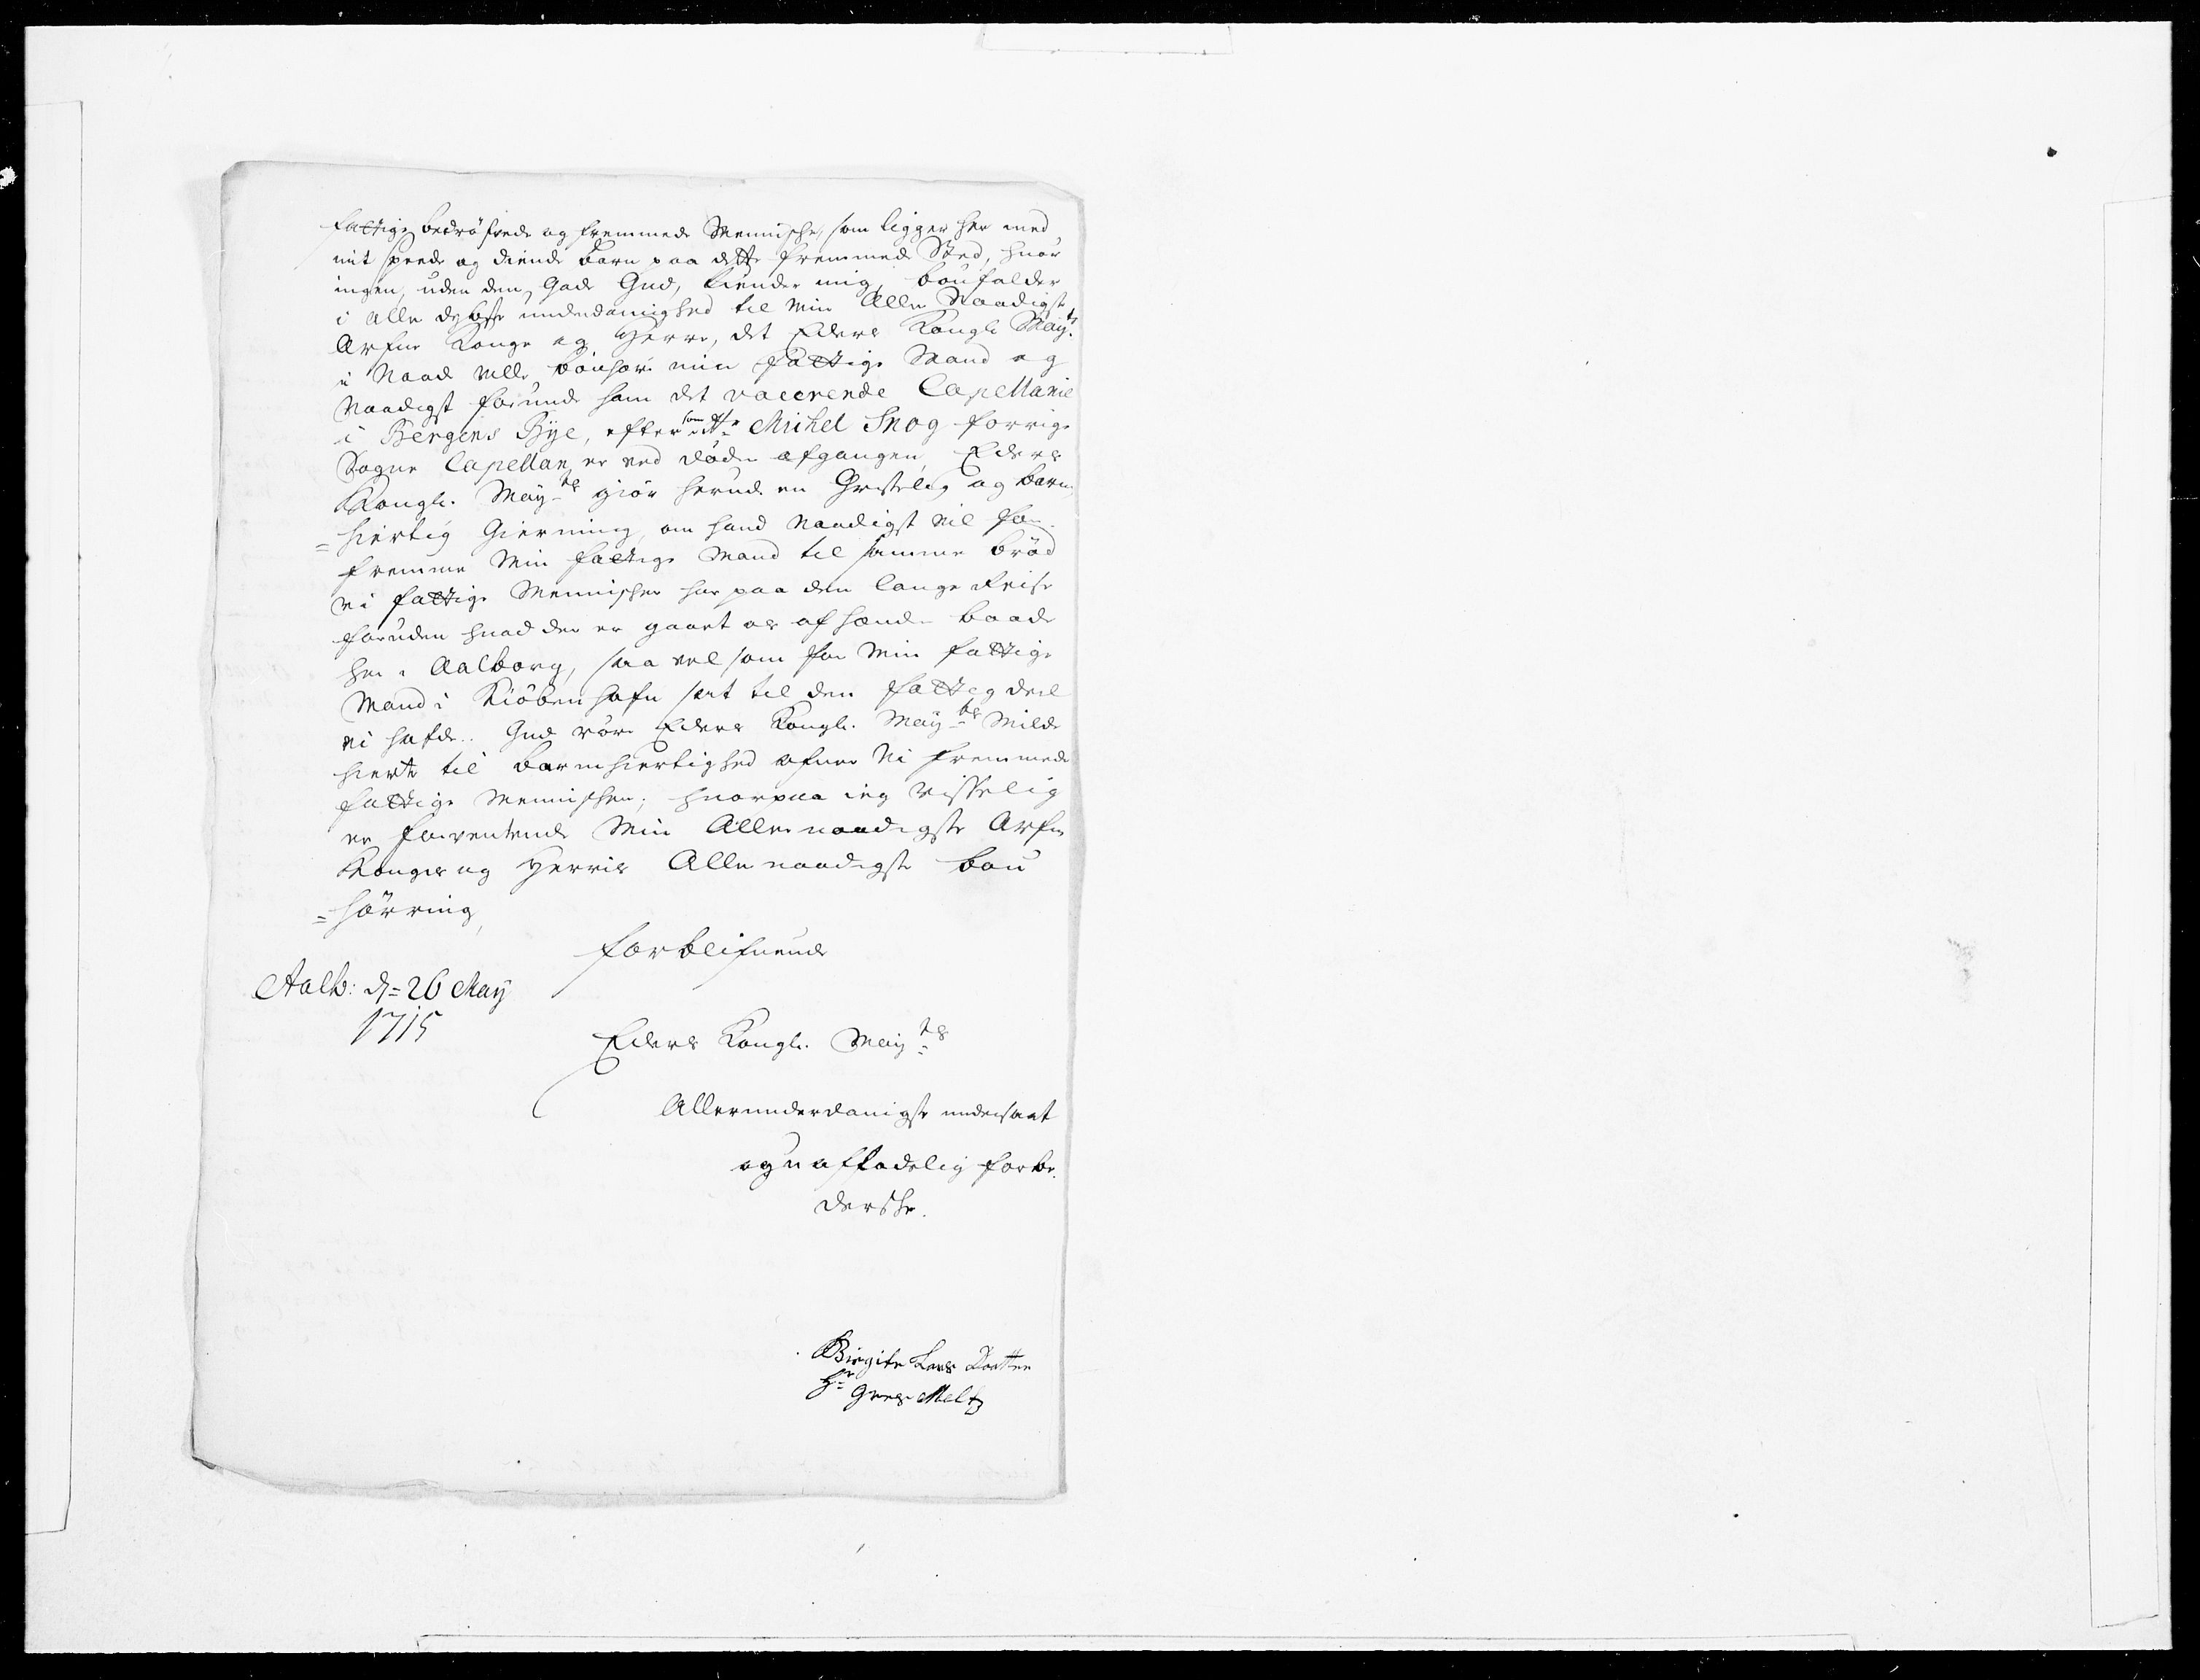 fattige bedröfvede og fremmede Menniske, som ligger her med
mit spede og diende barn paa dette fremmede Sted, hvor
ingen, uden den Gode Gud, kiender mig, bönfalder
i alle dybste underdanighed til Min Aller Naadigste
Arfve Konge og Herre, det Eders Kongl: May:ts
i Naad ville bönhöre min fattige Mand og
Naadigst forunde ham det vacerende Capellanie
i Bergens Bye, eftersom Hr Michel Snog forrige
Sogne Capellan, er ved döden afgangen, Eders
Kongl. May:ts giör herud en Christelig og barm
=hiertig Gierning, om hand Naadigst vil for-
fremme Min fattige Mand til samme bröd
vi fattige Mennisker har paa den lange Reise
foruden hvad der er gaaet os af hænde baade
her i Aalborg, saa vel som for Min fattige
Mand i Kiöbenhafn sat til den fattig deel
vi hafde. Gud röre Eders Kongl. May:ts Milde
hierte til barmhiertighed ofver Vi fremmede
fattige Mennisker; hvorpaa ieg visselig
er forventende Min Allernaadigste Arfve
Konges og Herris Aller naadigste bön
=hörring,
forblifvende
Aalb: d= 26 May
1715
Eders Kongl. May:ts
Allerunderdanigste undersaat
og uafladelig forbe-
derske.
Birgite Lars Daatter
Hr Gres Meltz